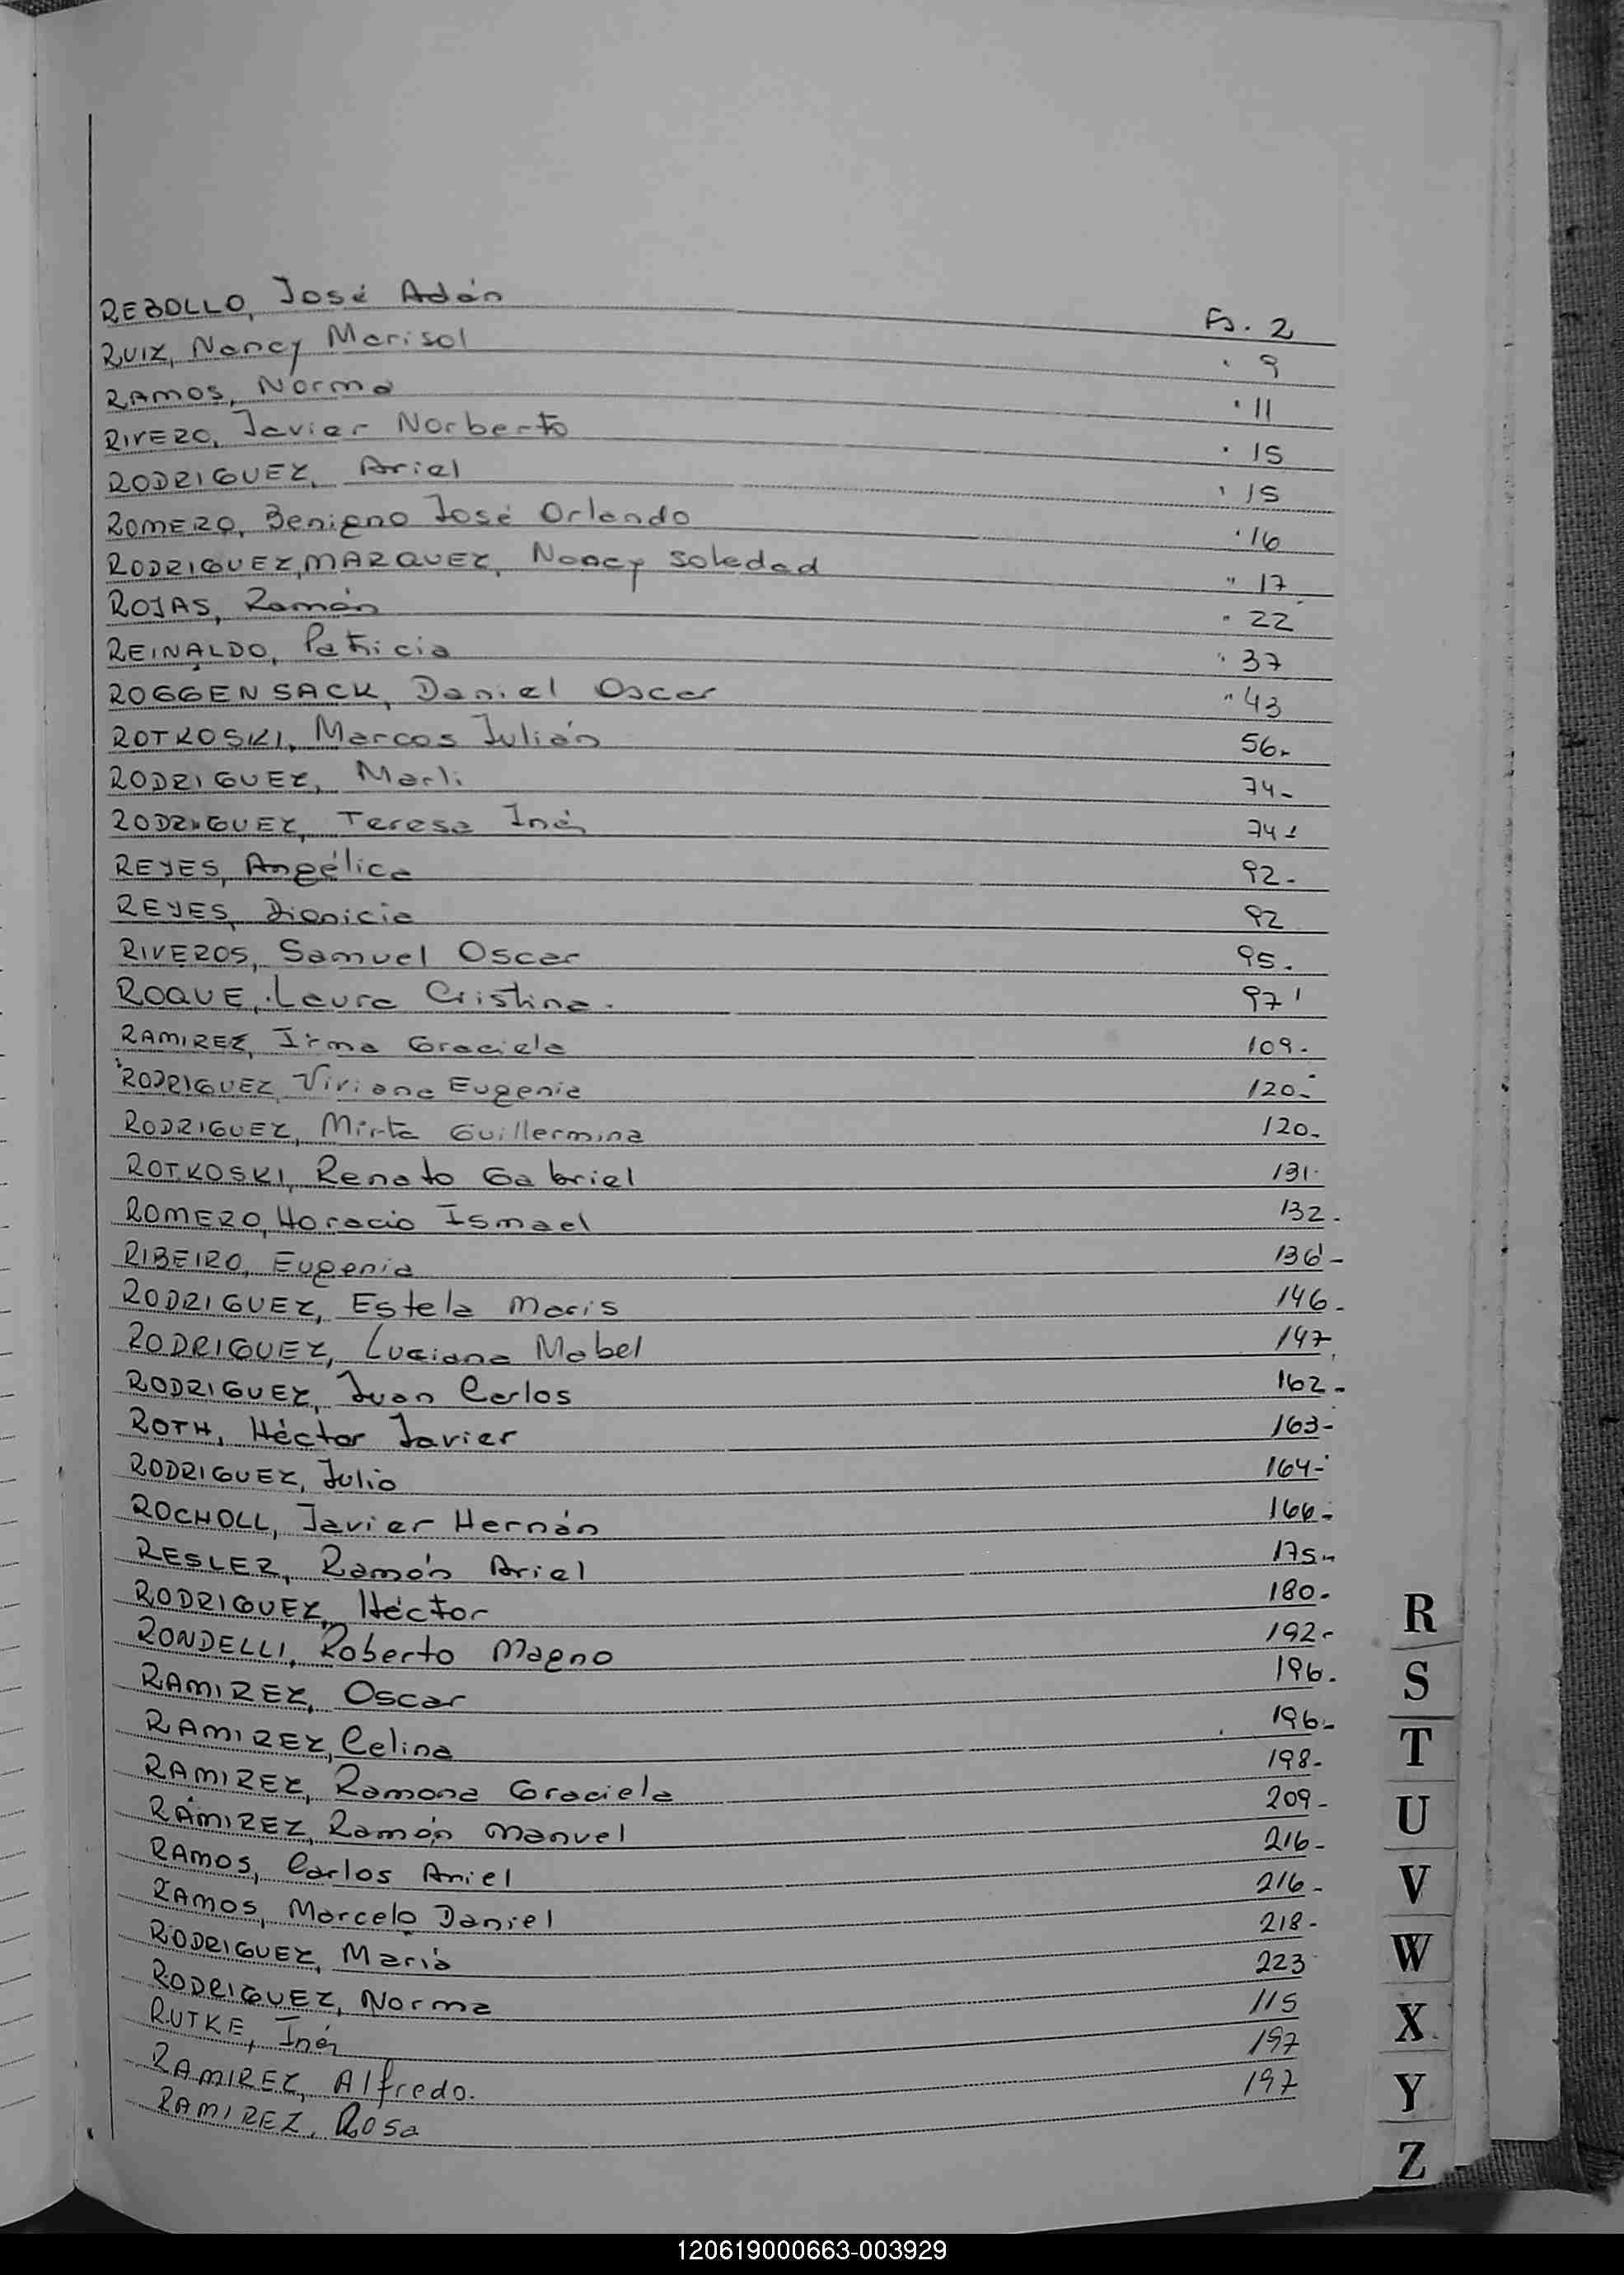 REBOLLO, José Adán Fs. 2
RUIZ, Nancy Marisol " 9
RAMOS, Norma " 11
RIVERO, Javier Norberto " 15
RODRIGUEZ, Ariel " 15
ROMERO, Benigno José Orlando " 16
RODRIGUEZ, MARQUEZ, Nancy Soledad " 17
ROJAS, Ramón " 22
REINALDO, Patricia " 37
ROGGENSACK, Daniel Oscar " 43
ROTKOSKI, Marcos Julián 56-
RODRIGUEZ, Marli 74-
RODRIGUEZ, Teresa Inés 74-
REYES, Angélica 92-
REYES, Dionicia 92
RIVEROS, Samuel Oscar 95.
ROQUE, Laura Cristina. 97
RAMIREZ, Irma Graciela 109-
RODRIGUEZ, Viviana Eugenia 120-
RODRIGUEZ, Mirta Guillermina 120-
ROTKOSKI, Renato Gabriel 131-
ROMERO, Horacio Ismael 132-
RIBEIRO, Eugenia 136-
RODRIGUEZ, Estela Maris 146-
RODRIGUEZ, Luciana Mabel 147
RODRIGUEZ, Juan Carlos 162-
ROTH, Héctor Javier 163-
RODRIGUEZ, Julio 164-
ROCHOLL, Javier Hernán 166-
RESLER, Ramón Ariel 175-
RODRIGUEZ, Héctor 180-
RONDELLI, Roberto Magno 192-
RAMIREZ, Oscar 196-
RAMIREZ, Celina 196-
RAMIREZ, Ramona Graciela 198-
RAMIREZ, Ramón Manuel 209-
RAMOS, Carlos Ariel 216-
RAMOS, Marcelo Daniel 216-
RODRIGUEZ, María 218-
RODRIGUEZ, Norma 223
RUTKE, Inés 115
RAMIREZ, Alfredo. 197
RAMIREZ, Rosa 197
R
S
T
U
V
W
X
Y
Z
120619000663-003929